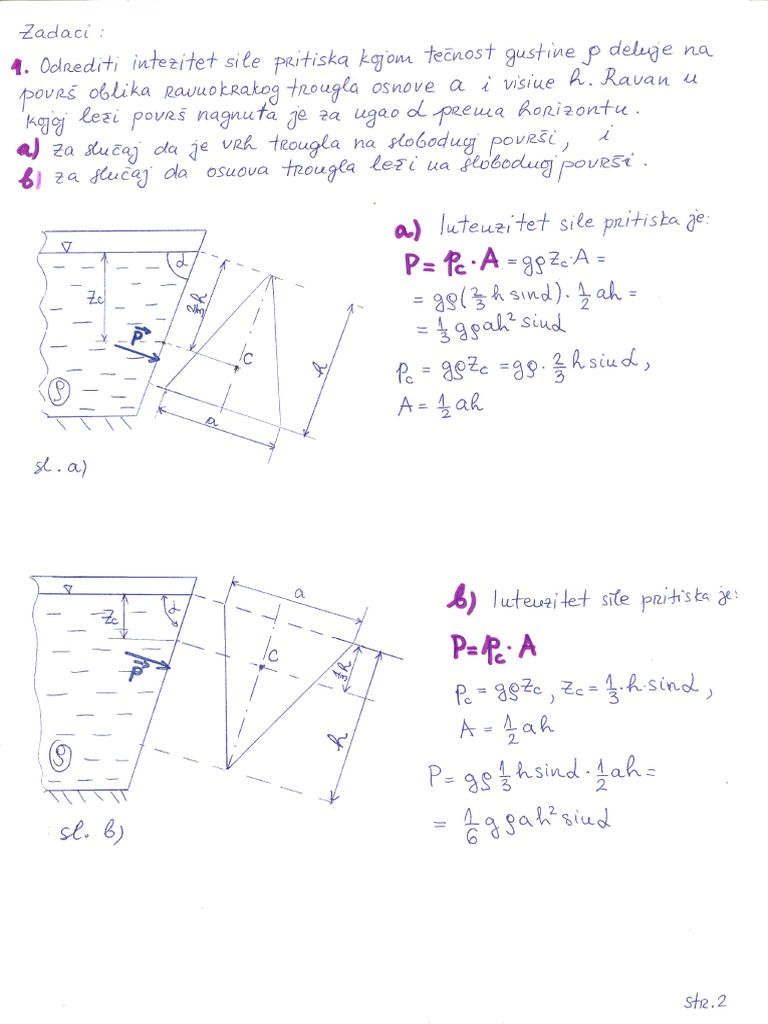 Zadaci:
1. Odrediti intezitet sile pritiska kojom tečnost gustine ρ deluje na
površ oblika ravnokrakog trougla osnove a i visine h. Ravan u
kojoj leži površ nagnuta je za ugao α prema horizontu.
a) za slučaj da je vrh trougla na slobodnoj površi, i
b) za slučaj da osnova trougla leži na slobodnoj površi.
a) Intenzitet sile pritiska je:
P = pc · A = gρzc · A =
= gρ(2/3 h sinα) · 1/2 ah =
= 1/3 gρah² sinα
pc = gρzc = gρ · 2/3 h sinα,
A = 1/2 ah
α
zc
2/3 h
P
C
h
ρ
a
sl. a)
b) Intenzitet sile pritiska je:
P = pc · A
pc = gρzc, zc = 1/3 · h · sinα,
A = 1/2 ah
P = gρ 1/3 h sinα · 1/2 ah =
= 1/6 gρah² sinα
a
zc
α
C
P
1/3 h
h
ρ
sl. b)
str. 2